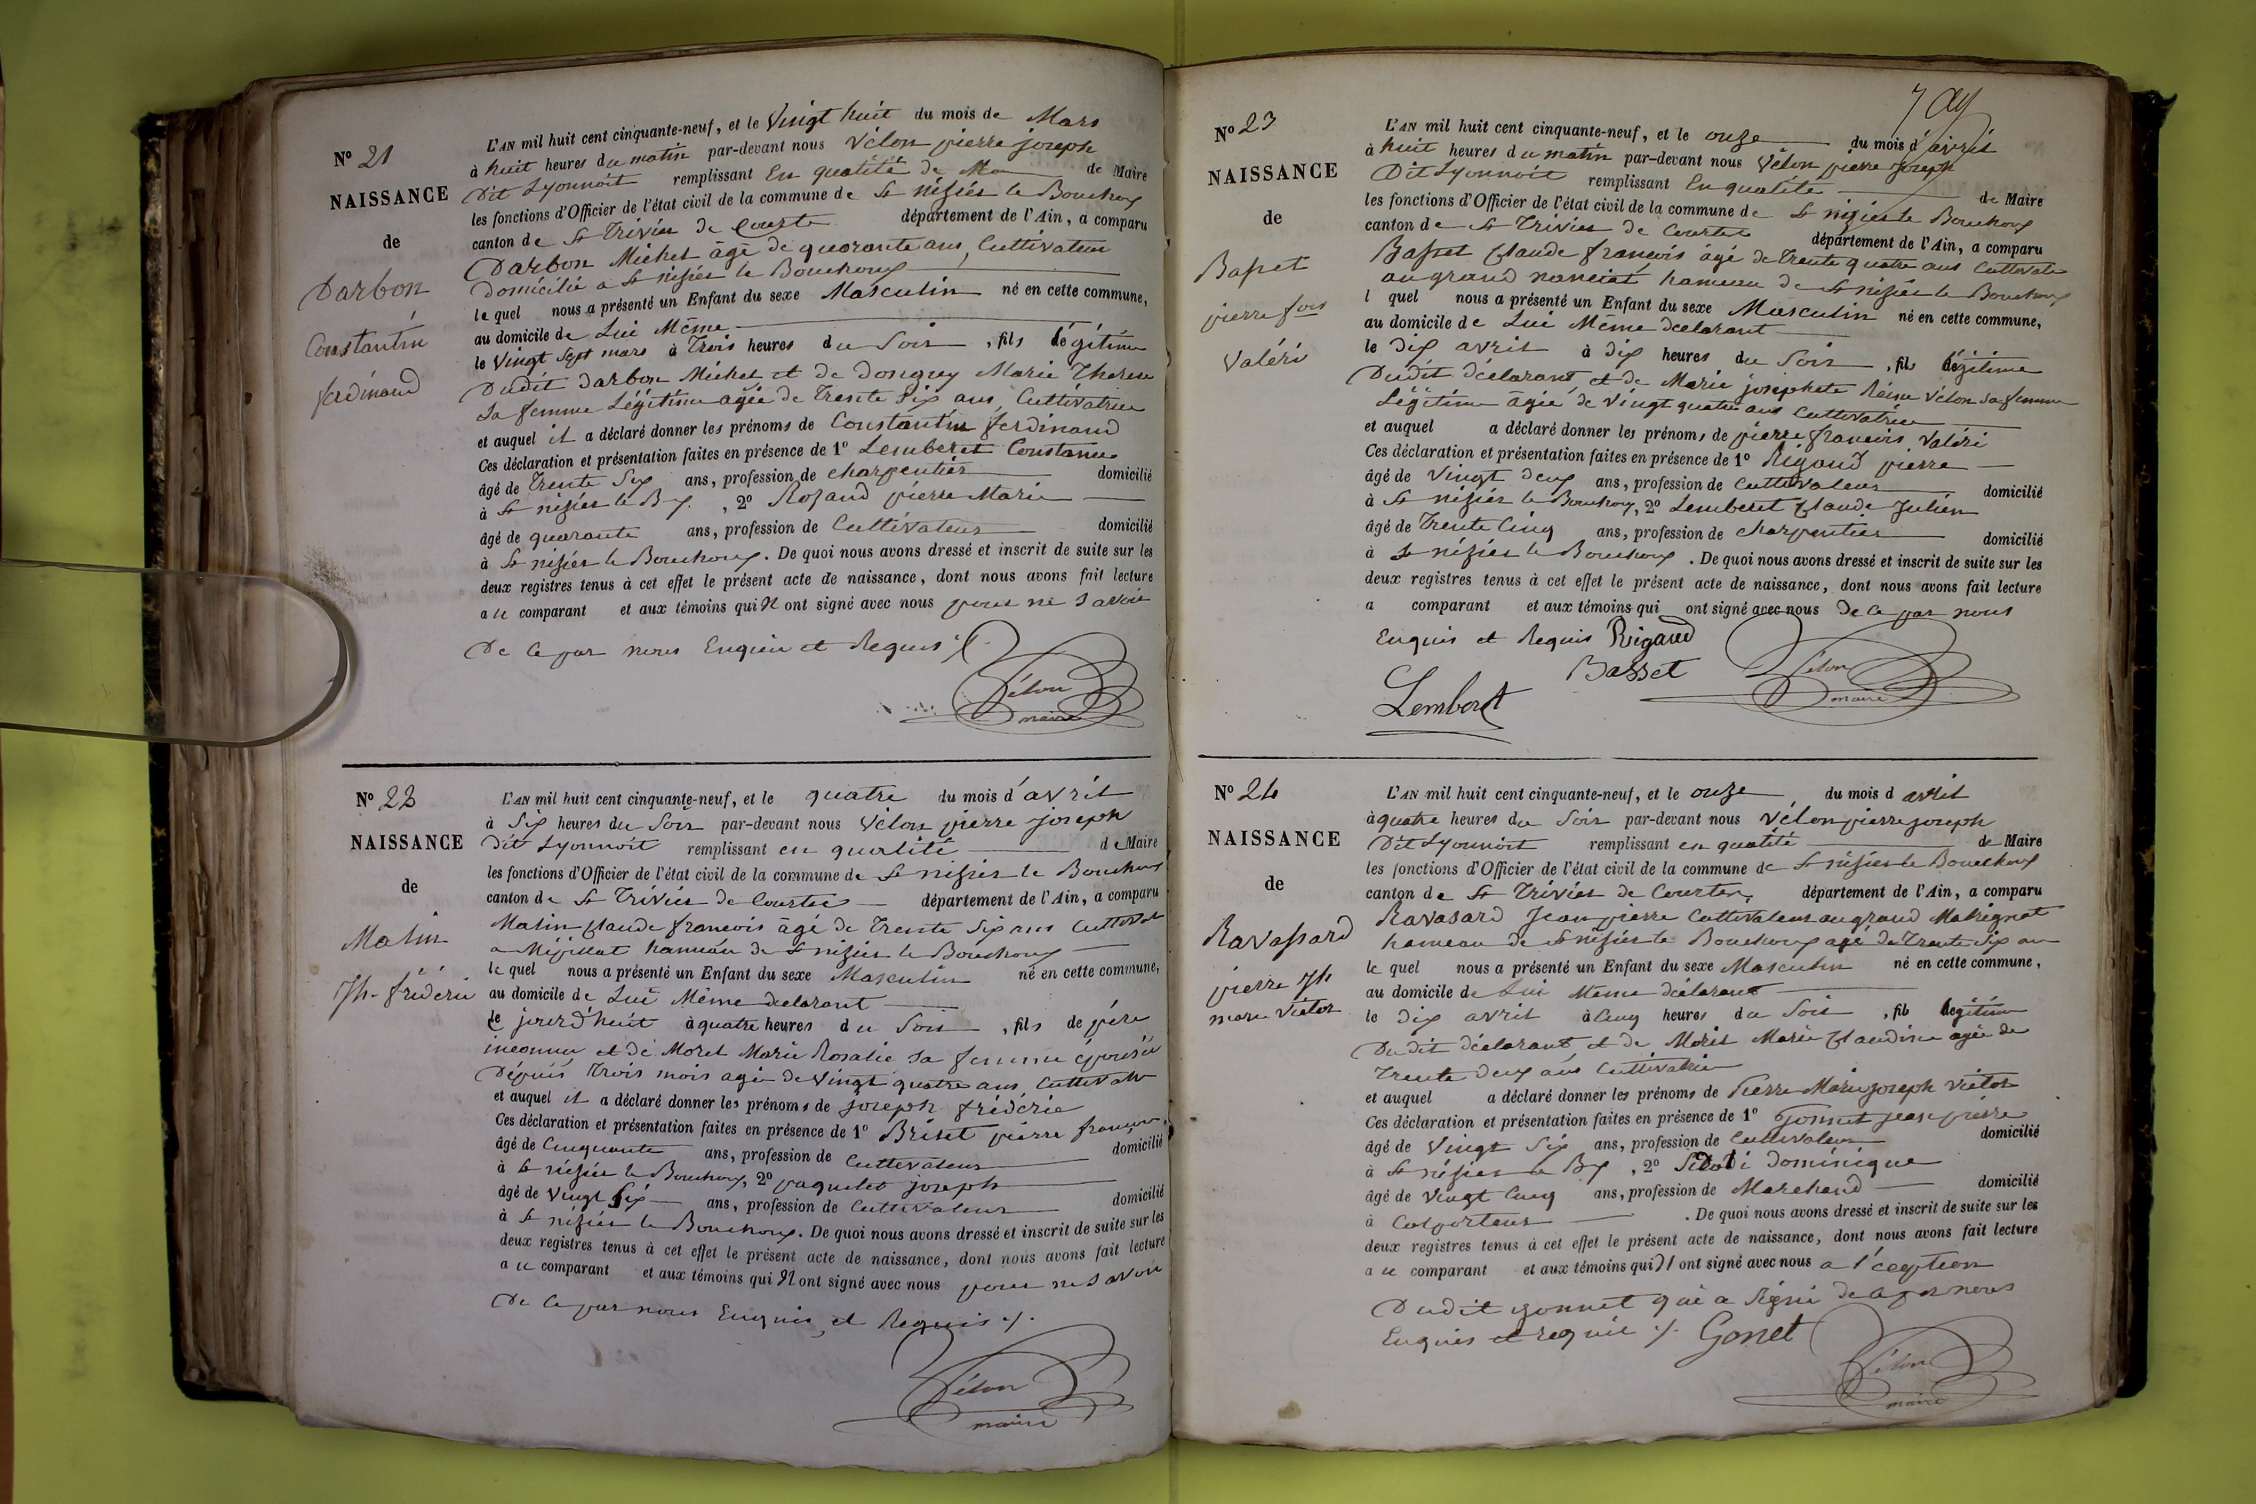 N° 21
NAISSANCE
de
Darbon
Constantin
ferdinand
L'AN mil huit cent cinquante-neuf, et le Vingt huit du mois de Mars
à huit heures du matin par-devant nous Vélon pierre joseph
Dit Lyonnoit remplissant En qualité de Ma de Maire
les fonctions d'Officier de l'état civil de la commune de St nésiér le Bouchoux
canton de St Trivier de Courte département de l'Ain, a comparu
Darbon Michel âgé de quarante ans, Cultivateur
Domicilié a St nisier le Bouchoux
le quel nous a présenté un Enfant du sexe Masculin né en cette commune,
au domicile de Lui Même
le Vingt Sept mars à Trois heures du Soir, fils légitime
Dudit Darbon Michel et de Donguy Marie Therese
Sa femme Légitime agée de Trente Six ans, Cultivatrice
et auquel il a déclaré donner les prénoms de Constantin ferdinand
Ces déclaration et présentation faites en présence de 1° Lemberet Constance
âgé de Trente Six ans, profession de charpentier domicilié
à St nesiér le Bx. , 2° Rosand pierre Marie
âgé de quarante ans, profession de Cultivateur domicilié
à St nisiér le Bouchoux. De quoi nous avons dressé et inscrit de suite sur les
deux registres tenus à cet effet le présent acte de naissance, dont nous avons fait lecture
au comparant et aux témoins qui N ont signé avec nous pour ne Savoir
De Ce par nous Enquis et Requis ./.
Vélon
maire
N° 22
NAISSANCE
de
Matin
Jh- frédéric
L'AN mil huit cent cinquante-neuf, et le quatre du mois d'avril
à Six heures du Soir par-devant nous Vélon pierre joseph
Dit Lyonnoit remplissant en qualité de Maire
les fonctions d'Officier de l'état civil de la commune de St nisiér le Bouchoux
canton de St Triviér de Courtes département de l'Ain, a comparu
Matin Claude francois âgé de Trente Six ans Cultivat
a hameau de St nisiér le Bouchoux
le quel nous a présenté un Enfant du sexe Masculin né en cette commune,
au domicile de Lui Même declarant
le jourd'huit à quatre heures du Soir, fils de père
inconnu et de Morel Marie Rosalie sa femme épousée
Dépuis Trois mois agée de Vingt quatre ans, Cultivatr
et auquel il a déclaré donner les prénoms de joseph frédéric
Ces déclaration et présentation faites en présence de 1° Briset pierre francois,
âgé de Cinquante ans, profession de Cultivateur domicilié
à St nésiér le Bouchoux, 2° paquelet joseph
âgé de Vingt Six ans, profession de Cultivateur domicilié
à St nésiér le Bouchoux. De quoi nous avons dressé et inscrit de suite sur les
deux registres tenus à cet effet le présent acte de naissance, dont nous avons fait lecture
au comparant et aux témoins qui N ont signé avec nous pour ne Savoir
De Ce par nous Enquis, et Requis ./.
Vélon
maire
N° 23
NAISSANCE
de
Basset
pierre fois
Valéri
L'AN mil huit cent cinquante-neuf, et le onze du mois d'avril
à huit heures du matin par-devant nous Vélon pierre Joseph
Dit Lyonnoit remplissant En qualité de Maire
les fonctions d'Officier de l'état civil de la commune de St nizier le Bouchoux
canton de St Trivier de Courtes département de l'Ain, a comparu
Basset Claude francois âgé de Trente quatre ans Cultivate
au grand hameau de St nisiér le Bouchoux
l quel nous a présenté un Enfant du sexe Masculin né en cette commune,
au domicile de Lui Même déclarant
le Dix avril à Dix heures du Soir, fils légitime
Dudit déclarant et de Marie josephete Reine Vélon sa femme
Légitime âgée de Vingt quatre ans Cultivatrice
et auquel a déclaré donner les prénoms de pierre francois Valéri
Ces déclaration et présentation faites en présence de 1° Rigaud pierre
âgé de Vingt deux ans, profession de Cultivateur domicilié
à St nésiér le Bouchoux, 2° Lemberet Claude Julien
âgé de Trente Cinq ans, profession de charpentier domicilié
à St nésiér le Bouchoux. De quoi nous avons dressé et inscrit de suite sur les
deux registres tenus à cet effet le présent acte de naissance, dont nous avons fait lecture
a comparant et aux témoins qui ont signé avec nous de Ce par nous
Enquis et Requis Rigaud
Basset
Lemberet
Vélon
maire
N° 24
NAISSANCE
de
Ravassard
pierre Jh
marie Victor
L'AN mil huit cent cinquante-neuf, et le onze du mois d avril
à quatre heures du Soir par-devant nous Vélon pierre joseph
Dit Lyonnoit remplissant en qualité de Maire
les fonctions d'Officier de l'état civil de la commune de St nésier le Bouchoux
canton de St Triviér de Courtes, département de l'Ain, a comparu
Ravasard Jean pierre Cultivateur au grand Malrignat
hameau de St nésiér le Bouchoux agé de Trente Six an
le quel nous a présenté un Enfant du sexe Masculin né en cette commune,
au domicile de Lui Même déclarant
le Dix avril à Cinq heures du Soir, fils légitime
Du dit déclarant et de Morel Marie Claudine agée de
Trente deux ans Cultivatrice
et auquel a déclaré donner les prénoms de Pierre Marie joseph Victor
Ces déclaration et présentation faites en présence de 1° Gonnet jean pierre
âgé de Vingt Six ans, profession de Cultivateur domicilié
à St nésiér le Bx, 2° Dominique
âgé de Vingt Cinq ans, profession de Marchand domicilié
à Colporteur. De quoi nous avons dressé et inscrit de suite sur les
deux registres tenus à cet effet le présent acte de naissance, dont nous avons fait lecture
au comparant et aux témoins qui N ont signé avec nous a l'éception
Dudit gonnet qui a Signé de Ce par nous
Enquis et requis ./. Gonet
Vélon
maire